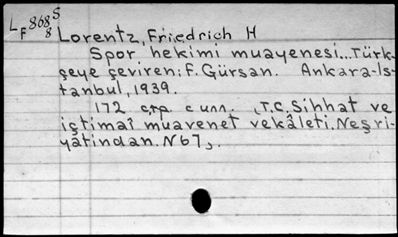 L 868 S
F 8
Lorentz, Friedrich H
Spor hekimi muayenesi...Türk-
şeye çeviren: F. Gürsan. Ankara-Is-
tanbul, 1939.
172 стр. с илл. (T.C. Sihhat ve
içtimaî muavenet vekâleti. Neşri-
yâtindan. N67).